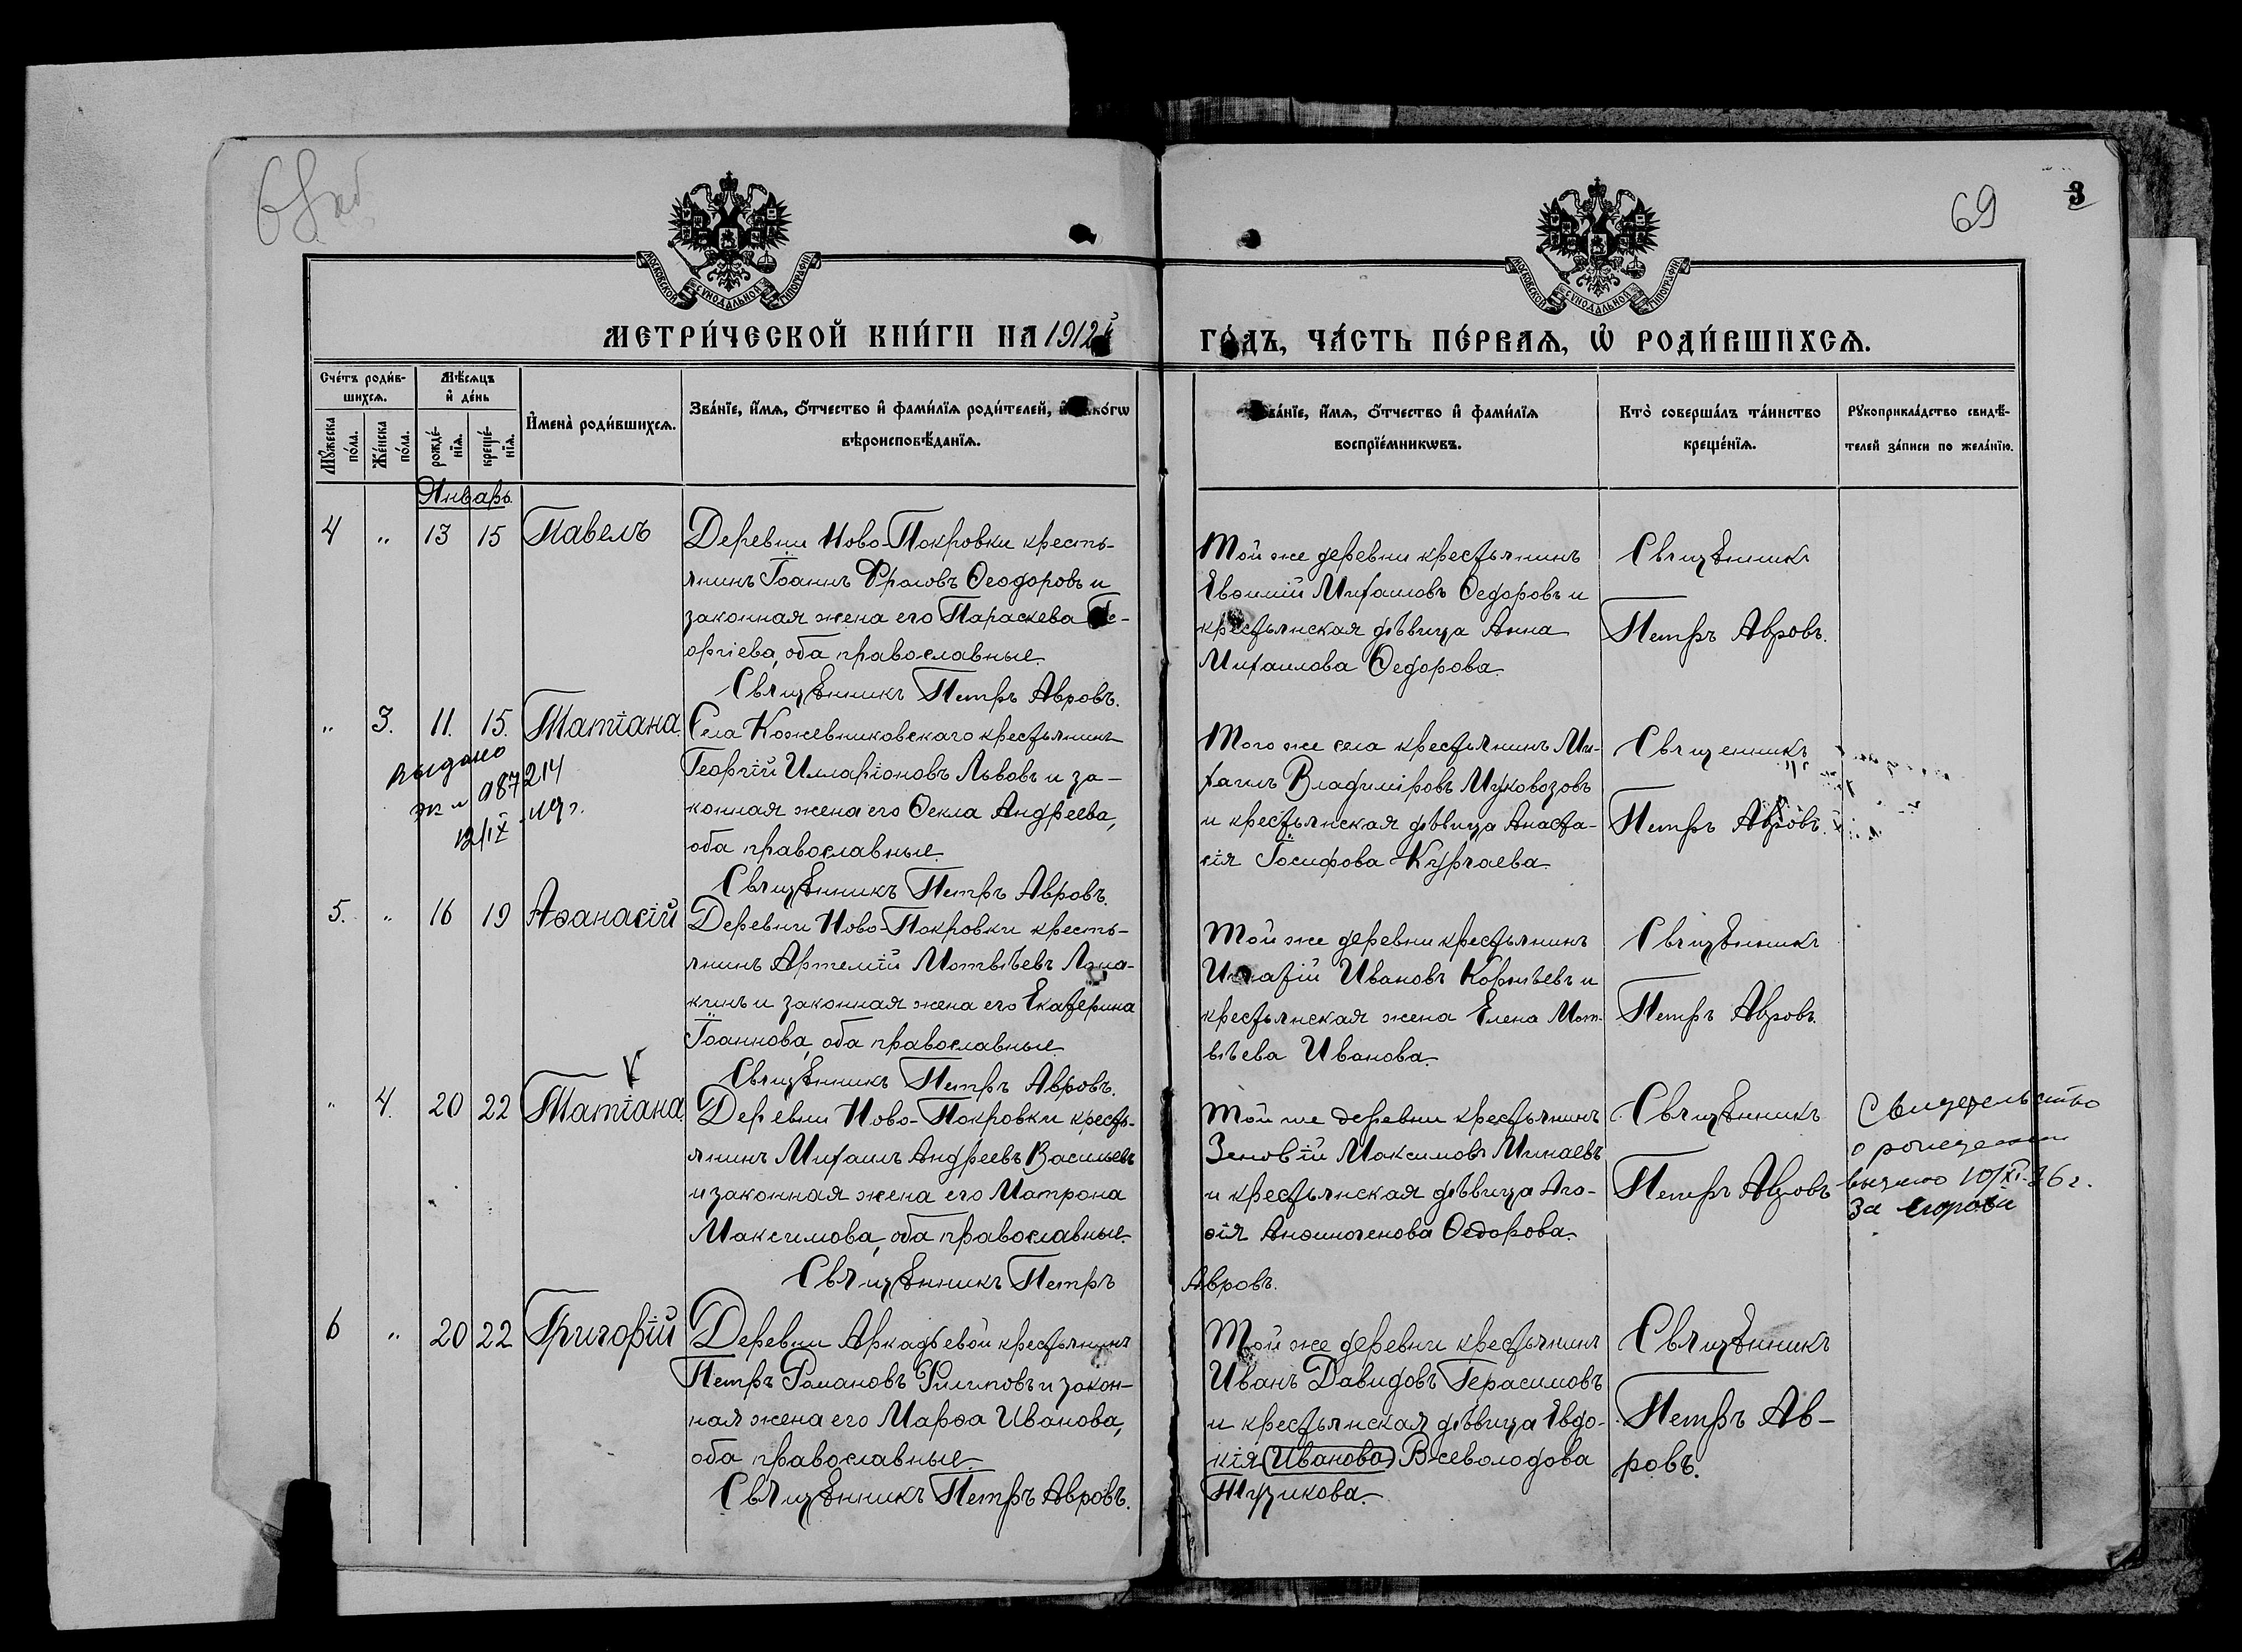 68 об
69
3
МОСКОВСКОЙ СѴНОДАЛЬНОЙ ТИПОГРАФІИ
МОСКОВСКОЙ СѴНОДАЛЬНОЙ ТИПОГРАФІИ
МЕТРИ́ЧЕСКОЙ КНИ́ГИ НА 1912й
ГО́ДЪ, ЧА́СТЬ ПЕ́РВАѦ, Ѡ҆ РОДИ́ВШИХСѦ.
Сче́тъ роди́в-
шихсѧ.
Мѣ́сѧцъ
и҆ де́нь
Мꙋ́жеска
по́ла.
Же́нска
по́ла.
рожде́-
нїѧ.
креще́-
нїѧ.
И҆мена̀ роди́вшихсѧ.
Зва́нїе, и҆́мѧ, ѻ҆́тчество и҆ фами́лїѧ роди́телей,
вѣроисповѣ́данїѧ.
и҆́мѧ, ѻ҆́тчество и҆ фами́лїѧ
воспрїе́мникѡвъ.
Кто̀ соверша́лъ та́инство
креще́нїѧ.
Рꙋкоприкла́дство свидѣ́-
телей за́писи по жела́нїю.
Январь.
4 „ 13 15 Павелъ
Деревни Ново-Покровки кресть-
янинъ Іоаннъ Фроловъ Ѳеодоровъ и
законная жена его Параскева Ге-
оргіева, оба православные.
Священникъ Петръ Авровъ.
Той же деревни крестьянинъ
Евѳимій Михаиловъ Ѳедоровъ и
крестьянская дѣвица Анна
Михаилова Ѳедорова.
Священникъ
Петръ Авровъ.
„ 3. 11. 15. Татіана.
выдано
987214
12/IX
Села Кожевниковскаго крестьянинъ
Георгій Илларіоновъ Львовъ и за-
конная жена его Ѳекла Андреева,
оба православные.
Священникъ Петръ Авровъ.
Того же села крестьянинъ Ми-
хаилъ Владиміровъ Муковозовъ
и крестьянская дѣвица Анаста-
сія Іосифова Курчаева.
Священникъ
Петръ Авровъ.
5. „ 16 19 Аѳанасій
Деревни Ново-Покровки кресть-
янинъ Артемій Матвѣевъ
кинъ и законная жена его Екатерина
Іоаннова, оба православные.
Священникъ Петръ Авровъ.
Той же деревни крестьянинъ
Игнатій Ивановъ Корнѣевъ и
крестьянская жена Елена Мат-
вѣева Иванова.
Священникъ
Петръ Авровъ.
„ 4. 20 22 Татіана.
Деревни Ново-Покровки кресть-
янинъ Михаилъ Андреевъ Васильевъ
и законная жена его Матрона
Максимова, оба православные.
Священникъ Петръ
Авровъ.
Той же деревни крестьянинъ
Зеновій Максимовъ Минаевъ
и крестьянская дѣвица Ага-
ѳія Анѳиногенова Ѳедорова.
Священникъ
Петръ Авровъ
Свидетельство
о рождении
выдано 10/XI-26 г.
За
6 „ 20 22 Григорій
Деревни Аркадьевой крестьянинъ
Петръ Романовъ Филиповъ и закон-
ная жена его Марѳа Иванова,
оба православные.
Священникъ Петръ Авровъ.
Той же деревни крестьянинъ
Иванъ Давидовъ Герасимовъ
и крестьянская дѣвица Евдо-
кія (Иванова) Всеволодова
Тузикова.
Священникъ
Петръ Ав-
ровъ.